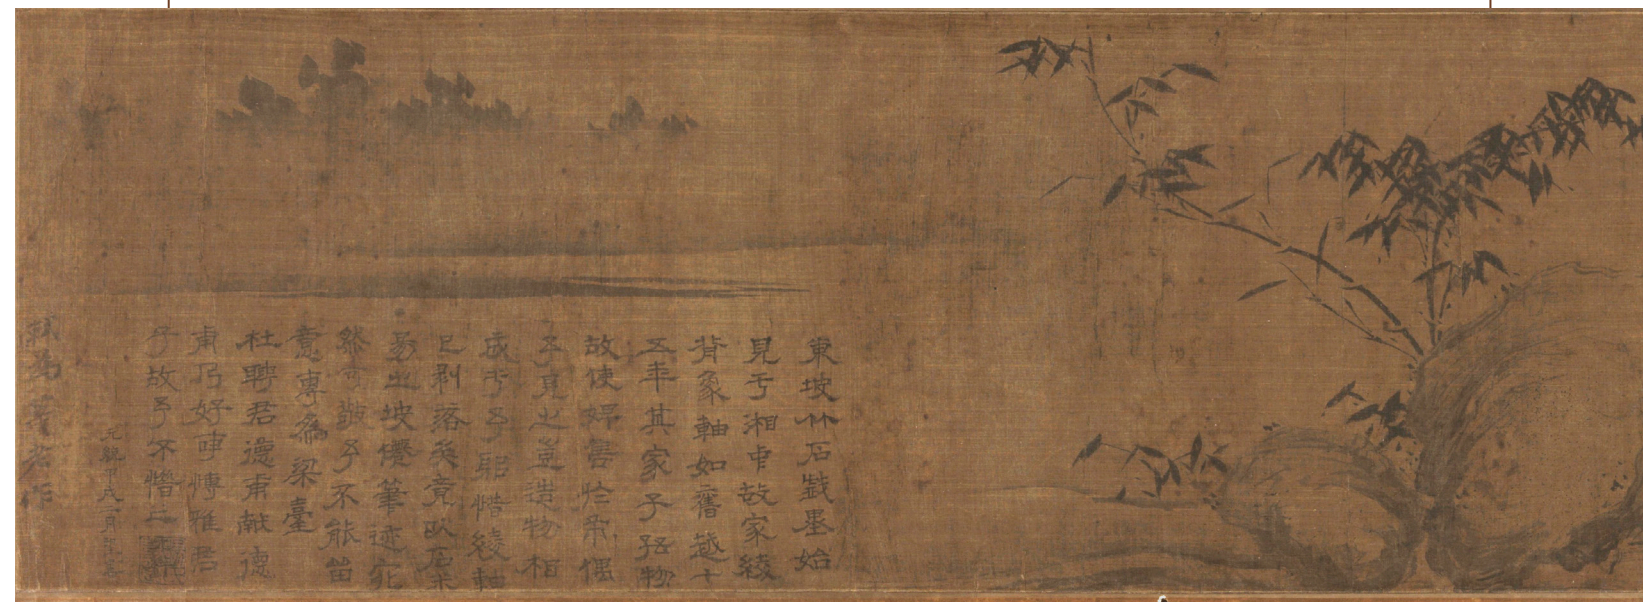 東坡竹石戲墨始
見于湘中故家綾
背象軸如舊越十
五年其家子孫物
故使婦售於偶
予見之豈造物相
成于予耶惜綾軸
已剝落矣竟以石米
易之坡僊筆迹宛
然可敬予不能留
意專為梁臺
杜聘君德甫献德
甫乃好事博雅君
子故予不惜云
元統甲戌二月望
軾為莘老作